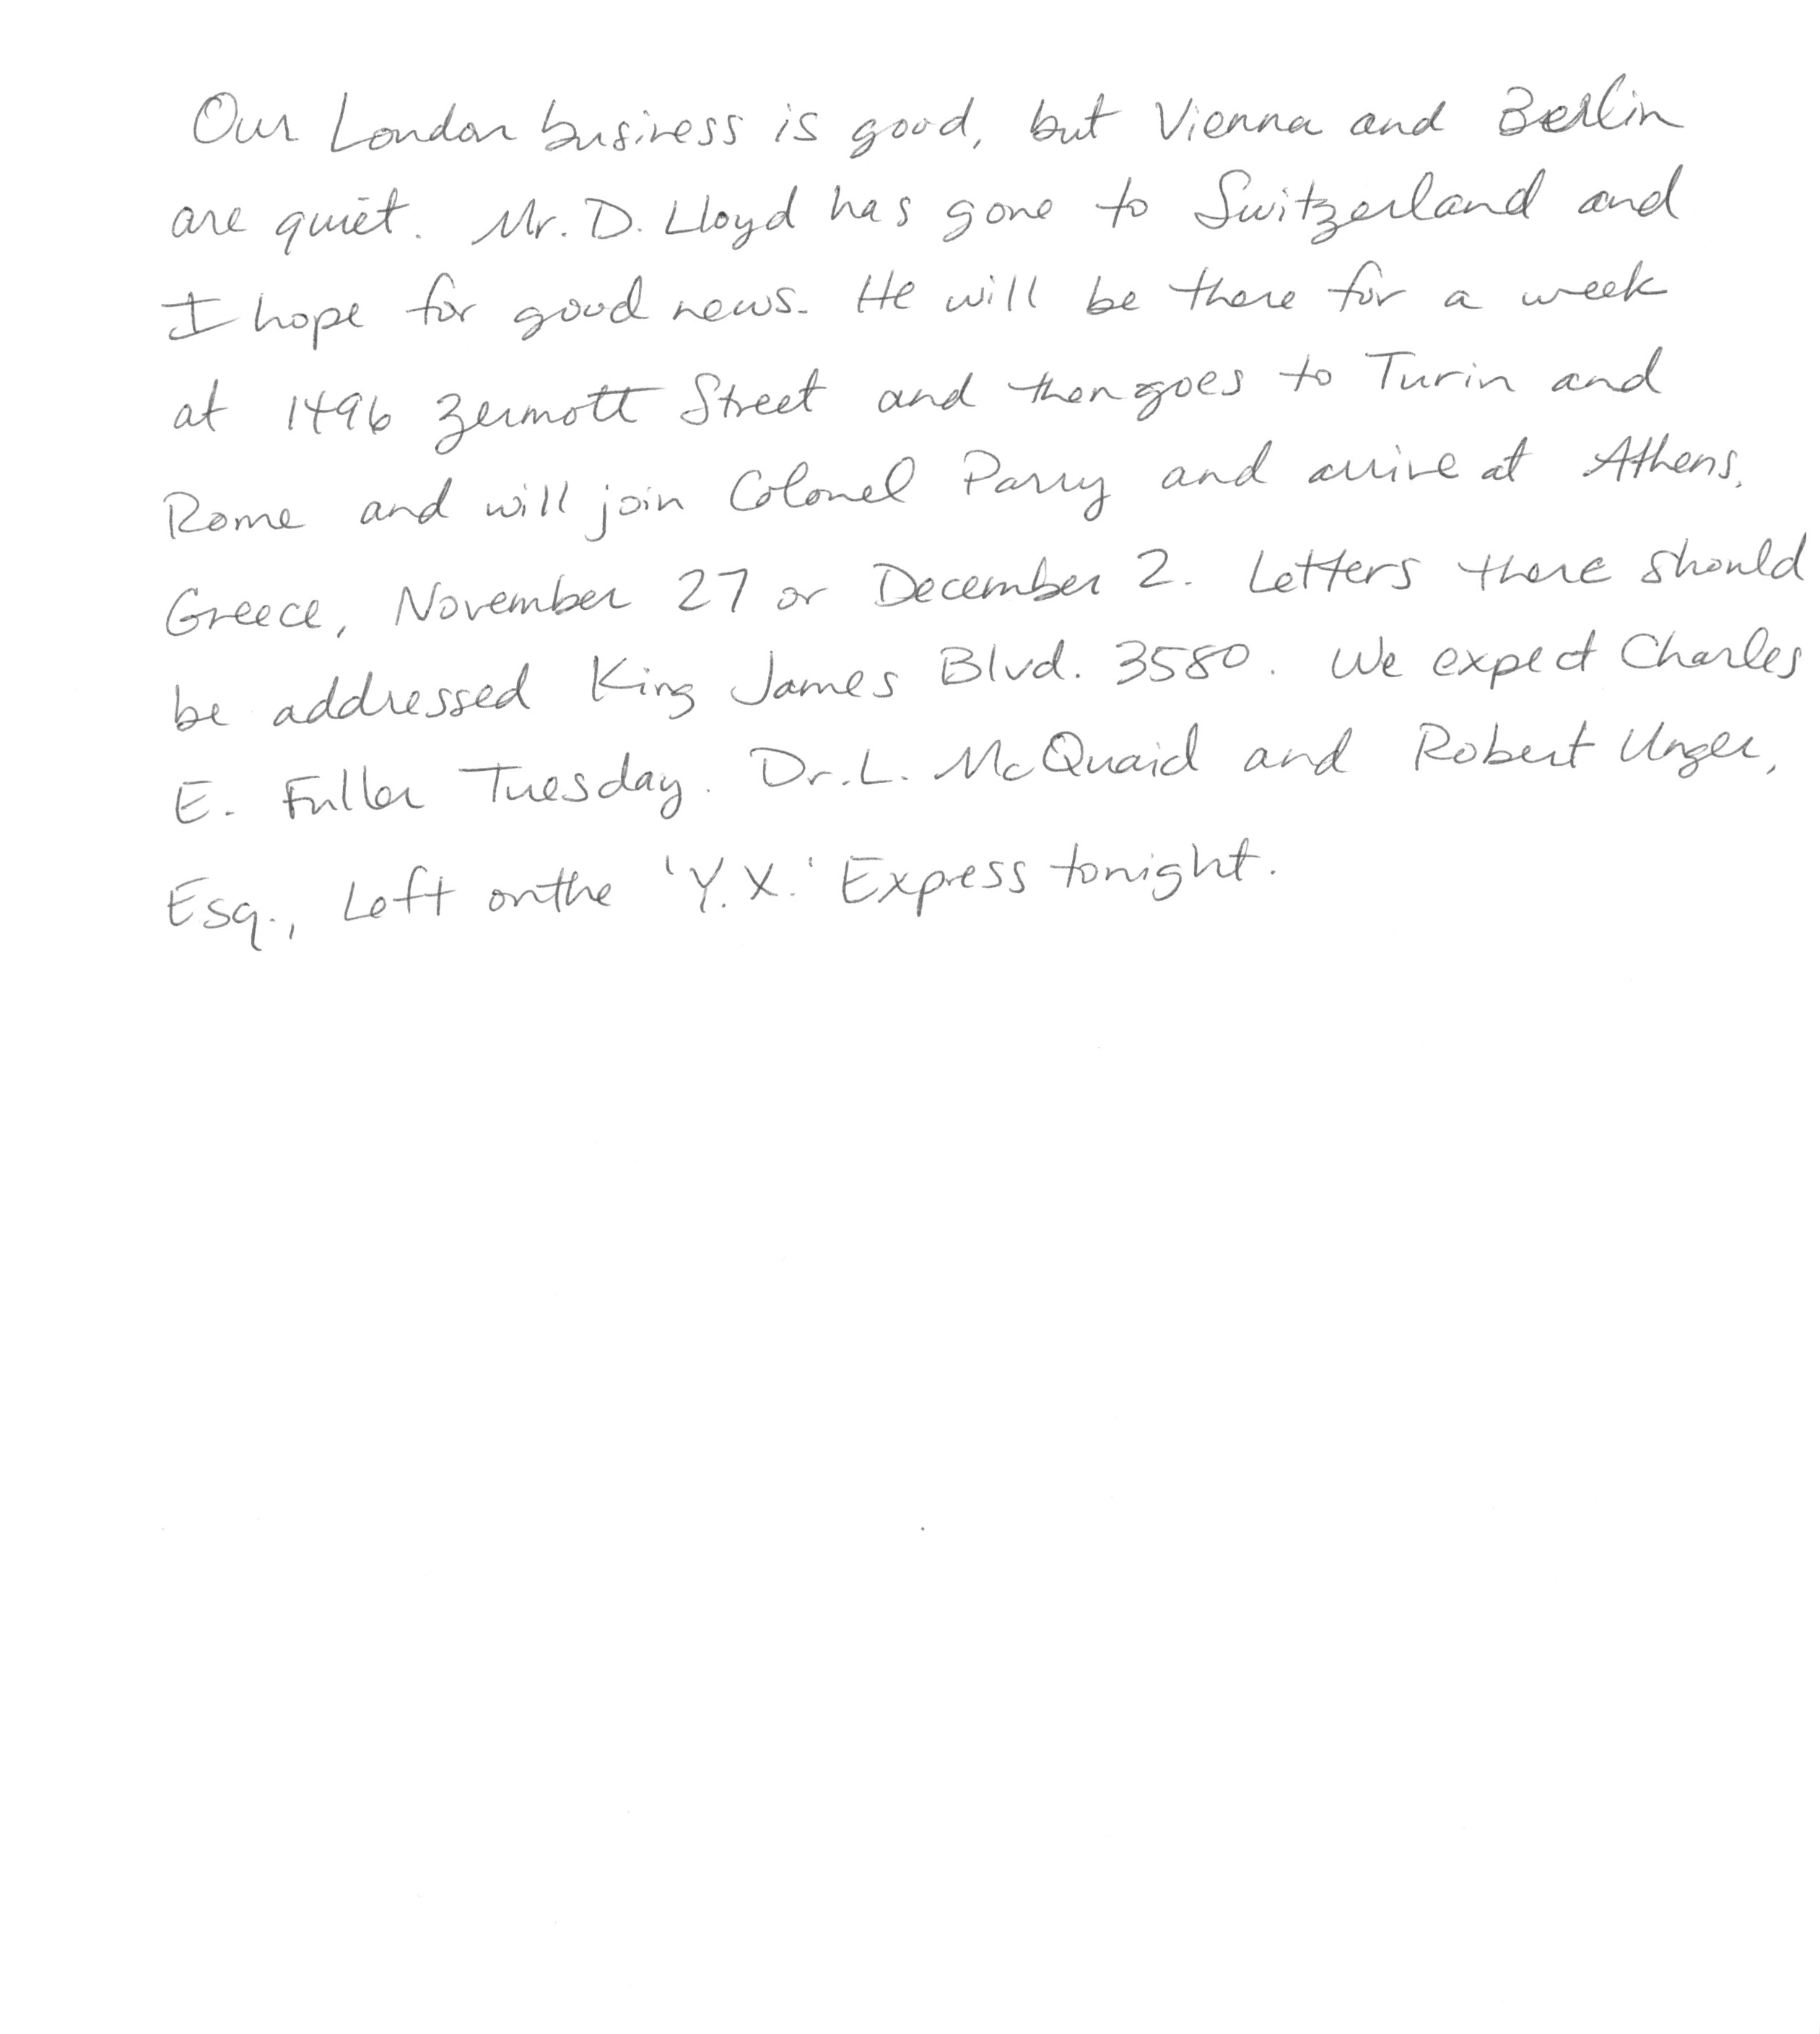 Our London business is good, but Vienna and Berlin
are quiet. Mr. D. Lloyd has gone to Switzerland and
I hope for good news. He will be there for a week
at 1496 Zermott Street and then goes to Turin and
Rome and will join Colonel Parry and arrive at Athens,
Greece, November 27 or December 2. Letters there should
be addressed King James Blvd. 3580. We expect Charles
E. Fuller Tuesday. Dr. L. McQuaid and Robert Unger,
Esq., Left on the 'Y.X.' Express tonight.